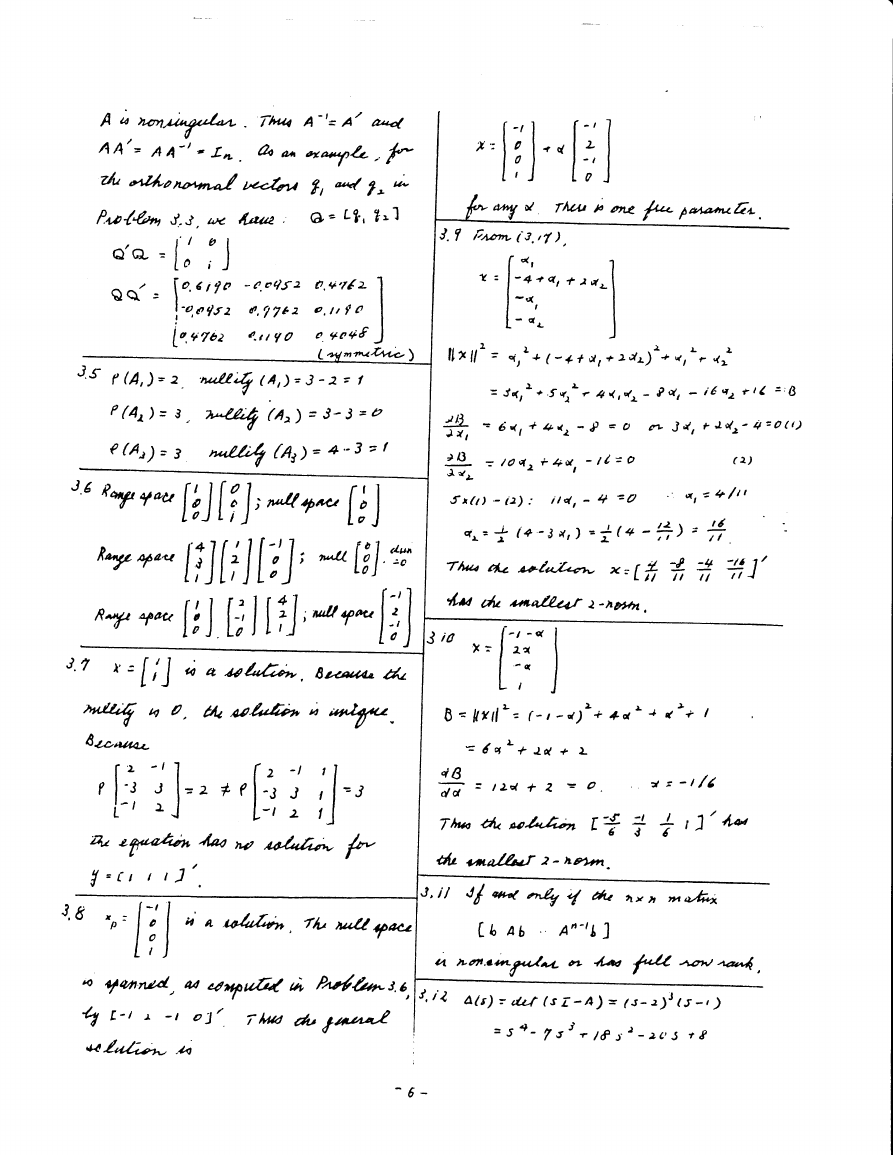 A is nonsingular. Thus A⁻¹ = A′ and
AA′ = AA⁻¹ = Iₙ. As an example, for
the orthonormal vectors q₁ and q₂ in
Problem 3.3, we have: Q = [q₁ q₂]
Q′Q = [1 0; 0 1]
QQ′ = [0.6190 -0.0952 0.4762; -0.0952 0.9762 0.1190; 0.4762 0.1190 0.4048]
(symmetric)
3.5 ρ(A₁) = 2, nullity (A₁) = 3-2 = 1
ρ(A₂) = 3, nullity (A₂) = 3-3 = 0
ρ(A₃) = 3 nullity (A₃) = 4-3 = 1
3.6 Range space [1; 0; 0] [0; 0; 1]; null space [1; 0; 0]
Range space [4; 3; 1] [1; 2; 1] [-1; 0; 0]; null [0; 0; 0]. dim =0
Range space [1; 0; 0] [2; -1; 0] [4; 2; 1]; null space [-1; 2; -1; 0]
3.7 x = [1; 1] is a solution. Because the
nullity is 0, the solution is unique.
Because
ρ[2 -1; -3 3; -1 2] = 2 ≠ ρ[2 -1 1; -3 3 1; -1 2 1] = 3
the equation has no solution for
y = [1 1 1]′.
3.8 xₚ = [-1; 0; 0; 1] is a solution. The null space
is spanned, as computed in Problem 3.6,
by [-1 2 -1 0]′. Thus the general
solution is
x = [-1; 0; 0; 1] + α [-1; 2; -1; 0]
for any α. There is one free parameter.
3.9 From (3.17),
x = [α₁; -4+α₁+2α₂; -α₁; -α₂]
||x||² = α₁² + (-4+α₁+2α₂)² + α₁² + α₂²
= 3α₁² + 5α₂² + 4α₁α₂ - 8α₁ - 16α₂ + 16 =: B
∂B/∂α₁ = 6α₁ + 4α₂ - 8 = 0 or 3α₁ + 2α₂ - 4 = 0 (1)
∂B/∂α₂ = 10α₂ + 4α₁ - 16 = 0 (2)
5x(1) - (2): 11α₁ - 4 = 0 ∴ α₁ = 4/11
α₂ = 1/2 (4 - 3α₁) = 1/2 (4 - 12/11) = 16/11
Thus the solution x = [4/11 -8/11 -4/11 -16/11]′
has the smallest 2-norm.
3.10 x = [-1-α; 2α; -α; 1]
B = ||x||² = (-1-α)² + 4α² + α² + 1
= 6α² + 2α + 2
dB/dα = 12α + 2 = 0. ∴ α = -1/6
Thus the solution [-5/6 -1/3 1/6 1]′ has
the smallest 2-norm.
3.11 If and only if the n×n matrix
[b Ab ·· Aⁿ⁻¹b]
is nonsingular or has full row rank.
3.12 Δ(s) = det (sI-A) = (s-2)³(s-1)
= s⁴ - 7s³ + 18s² - 20s + 8
-6-